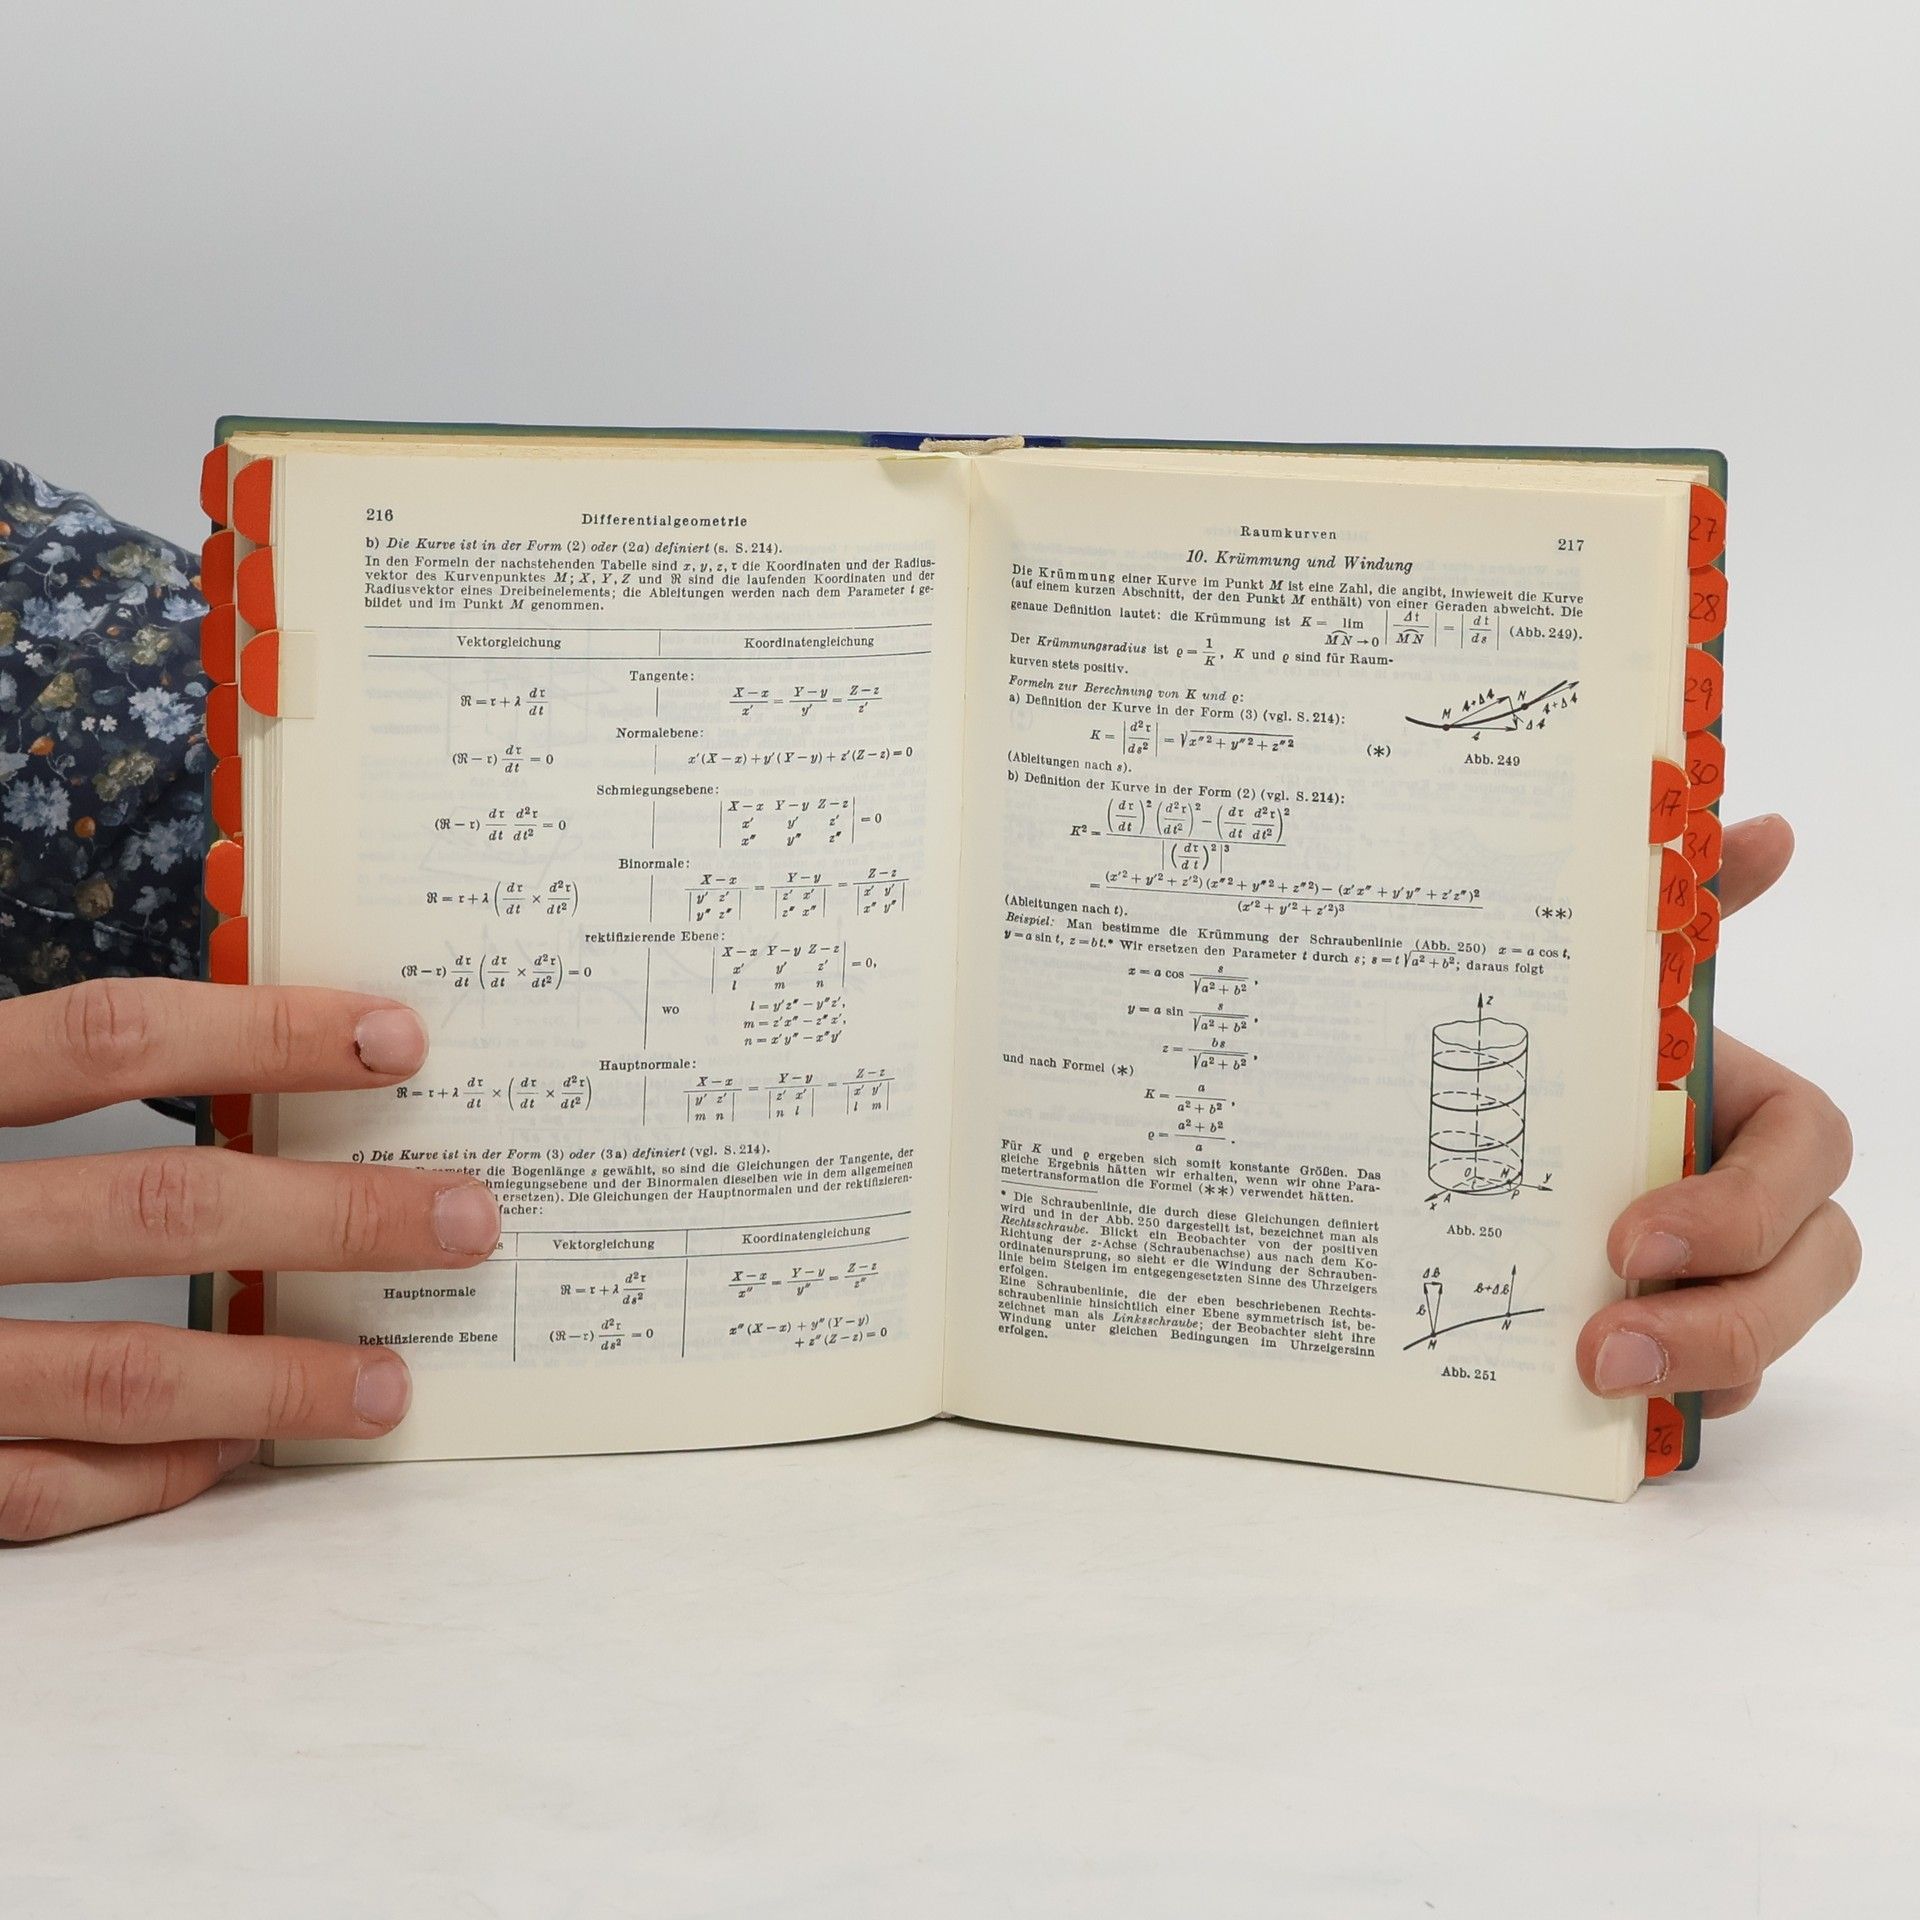 216
Differentialgeometrie
b) Die Kurve ist in der Form (2) oder (2a) definiert (s. S. 214).
In den Formeln der nachstehenden Tabelle sind x, y, z, 𝔯 die Koordinaten und der Radius-
vektor des Kurvenpunktes M; X, Y, Z und ℜ sind die laufenden Koordinaten und der
Radiusvektor eines Dreibeinelements; die Ableitungen werden nach dem Parameter t ge-
bildet und im Punkt M genommen.
Vektorgleichung Koordinatengleichung
Tangente:
ℜ = 𝔯 + λ d𝔯/dt (X − x)/x′ = (Y − y)/y′ = (Z − z)/z′
Normalebene:
(ℜ − 𝔯) d𝔯/dt = 0 x′(X − x) + y′(Y − y) + z′(Z − z) = 0
Schmiegungsebene:
(ℜ − 𝔯) d𝔯/dt d²𝔯/dt² = 0 |X − x Y − y Z − z; x′ y′ z′; x″ y″ z″| = 0
Binormale:
ℜ = 𝔯 + λ (d𝔯/dt × d²𝔯/dt²) (X − x)/|y′ z′; y″ z″| = (Y − y)/|z′ x′; z″ x″| = (Z − z)/|x′ y′; x″ y″|
rektifizierende Ebene:
(ℜ − 𝔯) d𝔯/dt (d𝔯/dt × d²𝔯/dt²) = 0 |X − x Y − y Z − z; x′ y′ z′; l m n| = 0,
wo l = y′z″ − y″z′,
m = z′x″ − z″x′,
n = x′y″ − x″y′
Hauptnormale:
ℜ = 𝔯 + λ d𝔯/dt × (d𝔯/dt × d²𝔯/dt²) (X − x)/|y′ z′; m n| = (Y − y)/|z′ x′; n l| = (Z − z)/|x′ y′; l m|
c) Die Kurve ist in der Form (3) oder (3a) definiert (vgl. S. 214).
die Bogenlänge s gewählt, so sind die Gleichungen der Tangente, der
und der Binormalen dieselben wie in dem allgemeinen
ersetzen). Die Gleichungen der Hauptnormalen und der rektifizieren-
Vektorgleichung Koordinatengleichung
Hauptnormale ℜ = 𝔯 + λ d²𝔯/ds² (X − x)/x″ = (Y − y)/y″ = (Z − z)/z″
Rektifizierende Ebene (ℜ − 𝔯) d²𝔯/ds² = 0 x″(X − x) + y″(Y − y)
+ z″(Z − z) = 0
Raumkurven
217
10. Krümmung und Windung
Die Krümmung einer Kurve im Punkt M ist eine Zahl, die angibt, inwieweit die Kurve
(auf einem kurzen Abschnitt, der den Punkt M enthält) von einer Geraden abweicht. Die
genaue Definition lautet: die Krümmung ist K = lim MN→0 |Δ𝔱/MN| = |d𝔱/ds| (Abb. 249).
Der Krümmungsradius ist ϱ = 1/K, K und ϱ sind für Raum-
kurven stets positiv.
Formeln zur Berechnung von K und ϱ:
a) Definition der Kurve in der Form (3) (vgl. S. 214):
K = |d²𝔯/ds²| = √(x″² + y″² + z″²) (*)
(Ableitungen nach s).
Abb. 249
b) Definition der Kurve in der Form (2) (vgl. S. 214):
K² = ((d𝔯/dt)² (d²𝔯/dt²)² − (d𝔯/dt d²𝔯/dt²)²)/|(d𝔯/dt)²|³
= ((x′² + y′² + z′²)(x″² + y″² + z″²) − (x′x″ + y′y″ + z′z″)²)/(x′² + y′² + z′²)³ (**)
(Ableitungen nach t).
Beispiel: Man bestimme die Krümmung der Schraubenlinie (Abb. 250) x = a cos t,
y = a sin t, z = bt.* Wir ersetzen den Parameter t durch s; s = t√(a² + b²); daraus folgt
x = a cos s/√(a² + b²),
y = a sin s/√(a² + b²),
z = bs/√(a² + b²),
und nach Formel (*)
K = a/(a² + b²),
ϱ = (a² + b²)/a.
Für K und ϱ ergeben sich somit konstante Größen. Das
gleiche Ergebnis hätten wir erhalten, wenn wir ohne Para-
metertransformation die Formel (**) verwendet hätten.
* Die Schraubenlinie, die durch diese Gleichungen definiert
wird und in der Abb. 250 dargestellt ist, bezeichnet man als
Rechtsschraube. Blickt ein Beobachter von der positiven
Richtung der z-Achse (Schraubenachse) aus nach dem Ko-
ordinatenursprung, so sieht er die Windung der Schrauben-
linie beim Steigen im entgegengesetzten Sinne des Uhrzeigers
erfolgen.
Eine Schraubenlinie, die der eben beschriebenen Rechts-
schraubenlinie hinsichtlich einer Ebene symmetrisch ist, be-
zeichnet man als Linksschraube; der Beobachter sieht ihre
Windung unter gleichen Bedingungen im Uhrzeigersinn
erfolgen.
Abb. 250
Abb. 251
27
28
29
30
17
31
18
32
19
20
26